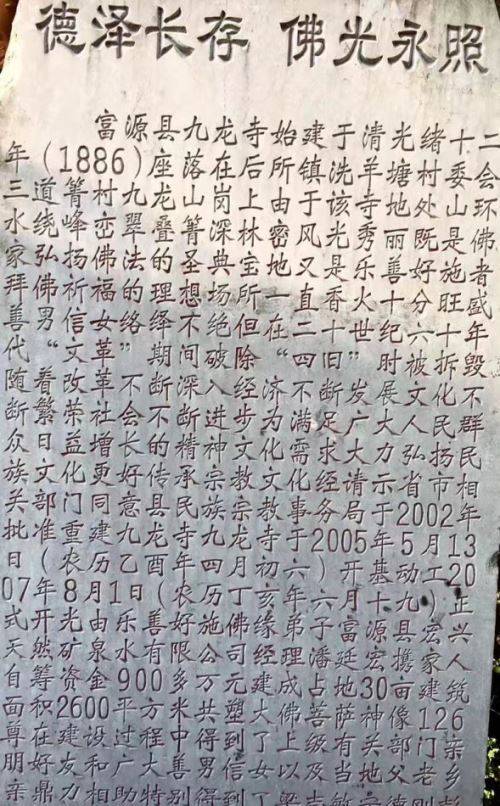 德泽长存 佛光永照
富源县九龙寺始建于清光绪十二
年（1886）座落在后所镇洗羊塘村委会
三道箐村九龙岗上由于该寺地处山环
水绕峰峦翠叠山箐林密风光秀丽既是佛
家弘扬佛法的圣典宝地又是乐善好施者
拜佛祈福的理想场所一直香火十分旺盛
善男信女络绎不绝但在二十世纪六十年
代“文革”期间破除“四旧”时被拆毁
随着改革不断深入经济不断发展文化不
断繁荣社会不断进步为满足广大人民群
众日益增长的精神文化需求大力弘扬民
族文化更好传承宗教文化经请示省市相
关部门同意县民族宗教事务局于2002年
批准重建九龙寺于2005年5月13
日（农历乙酉年四月初六）开基动工20
07年8月1日（农历丁亥年六月十九）正
式开光由乐善好施佛缘弟子富源县宏兴
天然矿泉水有限公司经理潘廷宏携家人
自筹资金900多万元建成占地30亩建筑
面积2600平方米共塑大佛菩萨神像126
尊在建设过程中得到了上级有关部门亲
朋好友和广大善男信女以及当地父老乡